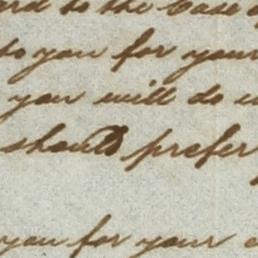 ard to the Case o
to you for your
you will do u
should prefer
you for your c